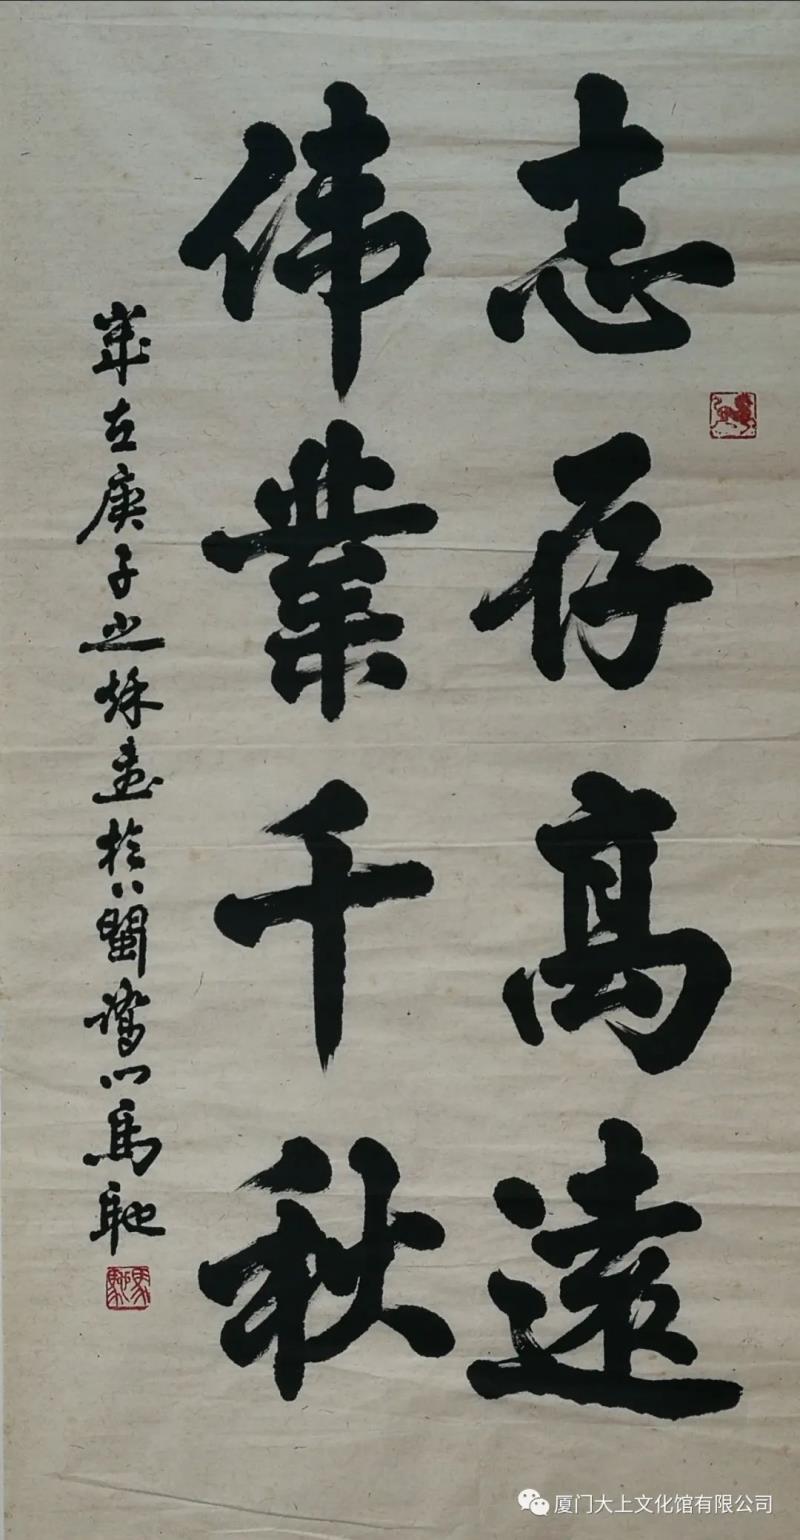 志存高遠
伟業千秋
歲在庚子之秋書於八閩鷺门馬馳
厦门大上文化馆有限公司